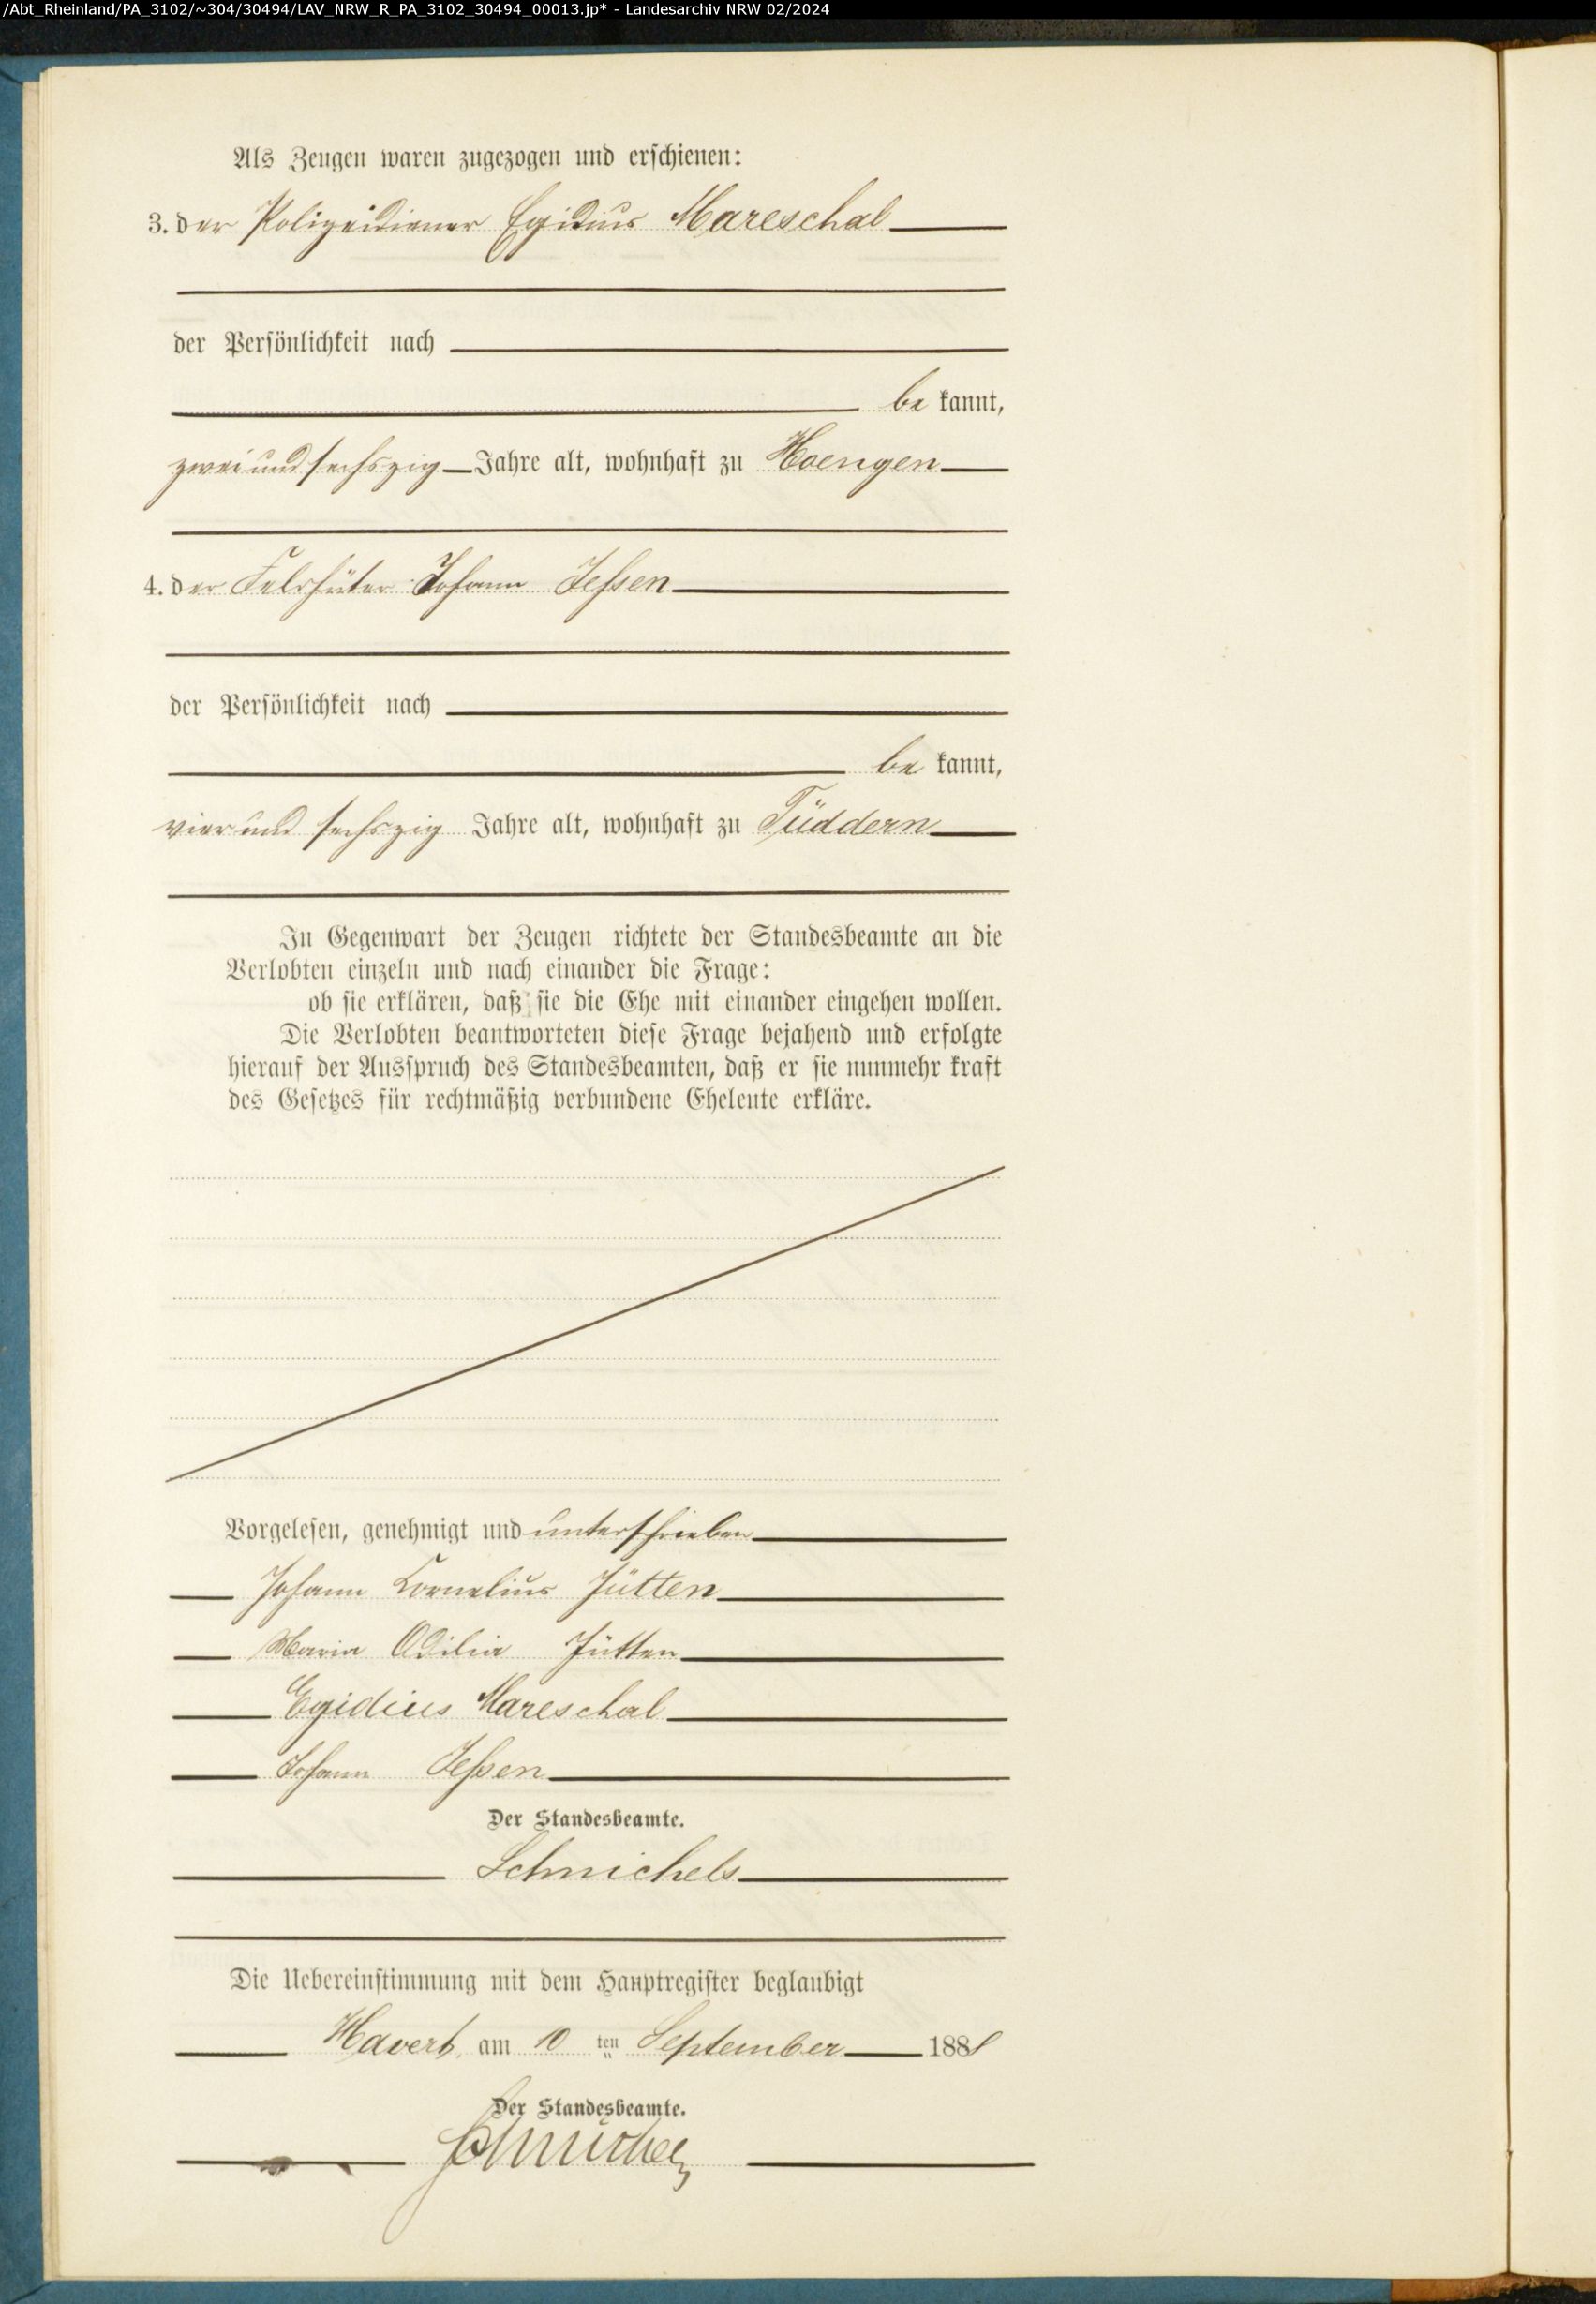 /Abt_Rheinland/PA_3102/~304/30494/LAV_NRW_R_PA_3102_30494_00013.jp* - Landesarchiv NRW 02/2024
Als Zeugen waren zugezogen und erschienen:
3. der Polizeidiener Egidius Mareschal
der Persönlichkeit nach
be kannt,
zwei und sechszig Jahre alt, wohnhaft zu Hoengen
4. der Feldhüter Johann Jeßen
der Persönlichkeit nach
be kannt,
vier und sechszig Jahre alt, wohnhaft zu Tüddern
In Gegenwart der Zeugen richtete der Standesbeamte an die
Verlobten einzeln und nach einander die Frage:
ob sie erklären, daß sie die Ehe mit einander eingehen wollen.
Die Verlobten beantworteten diese Frage bejahend und erfolgte
hierauf der Ausspruch des Standesbeamten, daß er sie nunmehr kraft
des Gesetzes für rechtmäßig verbundene Eheleute erkläre.
Vorgelesen, genehmigt und unterschrieben
Johann Cornelius Jütten
Maria Odilia Jütten
Egidius Mareschal
Johann Jeßen
Der Standesbeamte.
Schmichels
Die Uebereinstimmung mit dem Hauptregister beglaubigt
Havert, am 10 ten September 188
Der Standesbeamte.
Schmichels